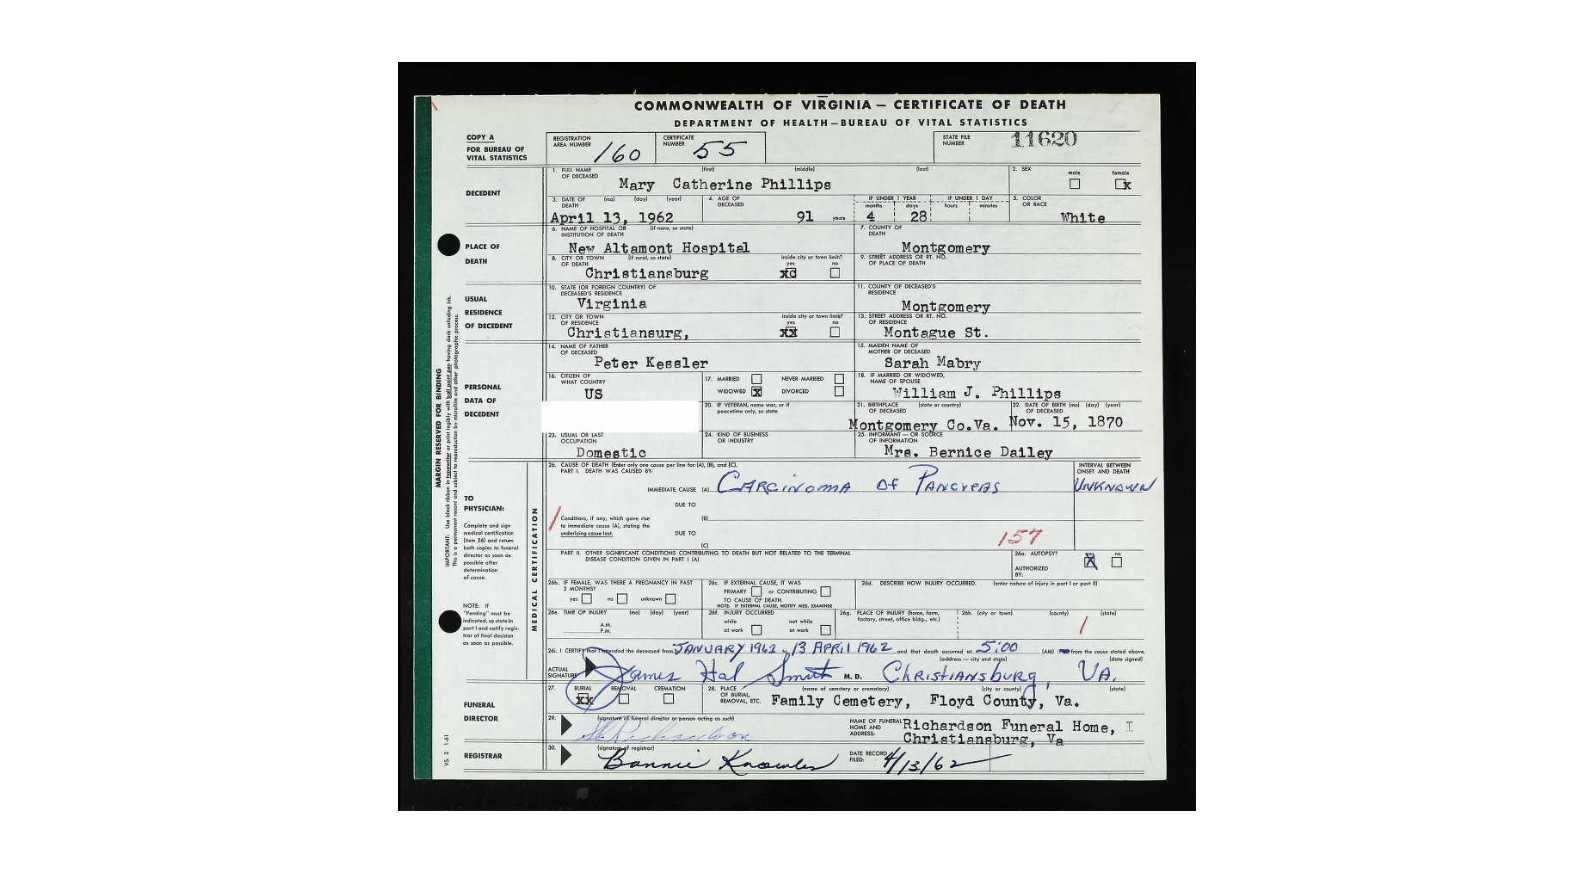 COMMONWEALTH OF VIRGINIA — CERTIFICATE OF DEATH
DEPARTMENT OF HEALTH—BUREAU OF VITAL STATISTICS
COPY A
FOR BUREAU OF
VITAL STATISTICS
REGISTRATION AREA NUMBER 160
CERTIFICATE NUMBER 55
STATE FILE NUMBER 11620
DECEDENT
1. FULL NAME OF DECEASED (first) (middle) (last)
Mary Catherine Phillips
2. SEX male female x
3. DATE OF DEATH (mo) (day) (year)
April 13, 1962
4. AGE OF DECEASED 91 years
IF UNDER 1 YEAR months days
4 28
IF UNDER 1 DAY hours minutes
5. COLOR OR RACE
White
PLACE OF
DEATH
6. NAME OF HOSPITAL OR INSTITUTION OF DEATH (if none, so state)
New Altamont Hospital
7. COUNTY OF DEATH
Montgomery
8. CITY OR TOWN OF DEATH (if rural, so state)
Christiansburg
inside city or town limit? yes no
9. STREET ADDRESS OR RT. NO. OF PLACE OF DEATH
USUAL
RESIDENCE
OF DECEDENT
10. STATE (OR FOREIGN COUNTRY) OF DECEASED'S RESIDENCE
Virginia
11. COUNTY OF DECEASED'S RESIDENCE
Montgomery
12. CITY OR TOWN OF RESIDENCE
Christiansurg,
inside city or town limit? yes no
xx
13. STREET ADDRESS OR RT. NO. OF RESIDENCE
Montague St.
PERSONAL
DATA OF
DECEDENT
14. NAME OF FATHER OF DECEASED
Peter Kessler
15. MAIDEN NAME OF MOTHER OF DECEASED
Sarah Mabry
16. CITIZEN OF WHAT COUNTRY
US
17. MARRIED NEVER MARRIED
WIDOWED x DIVORCED
18. IF MARRIED OR WIDOWED, NAME OF SPOUSE
William J. Phillips
20. IF VETERAN, name war, or if peacetime only, so state
21. BIRTHPLACE OF DECEASED (state or country)
Montgomery Co.Va.
22. DATE OF BIRTH OF DECEASED (mo) (day) (year)
Nov. 15, 1870
23. USUAL OR LAST OCCUPATION
Domestic
24. KIND OF BUSINESS OR INDUSTRY
25. INFORMANT — OR SOURCE OF INFORMATION
Mrs. Bernice Dailey
MARGIN RESERVED FOR BINDING
MEDICAL CERTIFICATION
TO
PHYSICIAN:
Complete and sign
medical certification
(item 26) and return
both copies to funeral
director as soon as
possible after
determination
of cause.
NOTE: If
"Pending" must be
indicated, so state in
part I and notify regis-
trar of final decision
as soon as possible.
26. CAUSE OF DEATH (Enter only one cause per line for (A), (B), and (C).
PART I. DEATH WAS CAUSED BY:
INTERVAL BETWEEN ONSET AND DEATH
IMMEDIATE CAUSE (A) Carcinoma of Pancreas Unknown
DUE TO
Conditions, if any, which gave rise to immediate cause (A), stating the underlying cause last.
(B)
DUE TO
(C)
157
PART II. OTHER SIGNIFICANT CONDITIONS CONTRIBUTING TO DEATH BUT NOT RELATED TO THE TERMINAL
DISEASE CONDITION GIVEN IN PART I (A)
26a. AUTOPSY? yes no
AUTHORIZED BY:
26b. IF FEMALE, WAS THERE A PREGNANCY IN PAST 3 MONTHS?
yes no unknown
26c. IF EXTERNAL CAUSE, IT WAS
PRIMARY or CONTRIBUTING
TO CAUSE OF DEATH
NOTE: IF EXTERNAL CAUSE, NOTIFY MED. EXAMINER
26d. DESCRIBE HOW INJURY OCCURRED. (enter nature of injury in part I or part II)
26e. TIME OF INJURY (mo) (day) (year)
A.M.
P.M.
26f. INJURY OCCURRED
while at work not while at work
26g. PLACE OF INJURY (home, farm, factory, street, office bldg., etc.)
26h. (city or town) (county) (state)
26i. I CERTIFY that I attended the deceased from January 1962 13 April 1962 and that death occurred at 5:00 (AM) from the cause stated above.
(address — city and state) (date signed)
ACTUAL SIGNATURE James Hal Smith M. D. Christiansburg, Va.
FUNERAL
DIRECTOR
27. BURIAL REMOVAL CREMATION
xx
28. PLACE OF BURIAL, REMOVAL, ETC. (name of cemetery or crematory) (city or county) (state)
Family Cemetery, Floyd County, Va.
29. (signature of funeral director or person acting as such)
Richardson
NAME OF FUNERAL HOME AND ADDRESS:
Richardson Funeral Home, I
Christiansburg, Va
REGISTRAR
30. (signature of registrar)
Bonnie Knowles
DATE RECORD FILED: 4/13/62
VS. 2 1-61